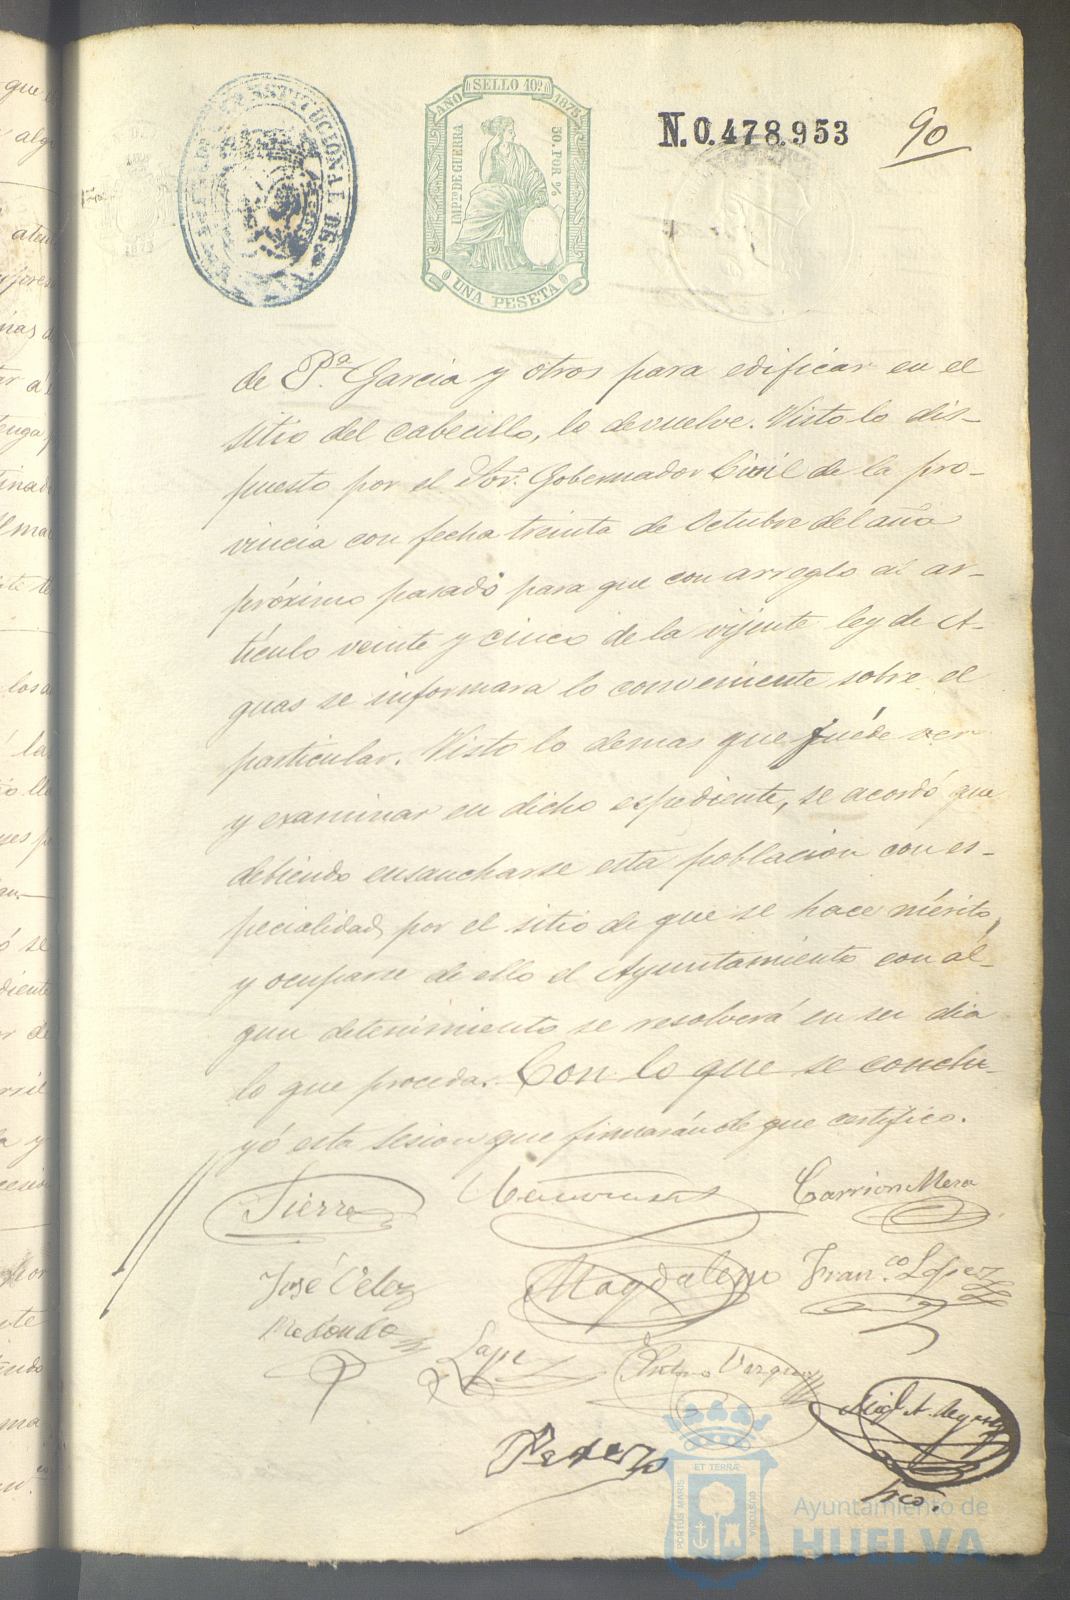 AÑO SELLO 10º 1875
IMPTO DE GUERRA
50. POR %
UNA PESETA
CONSTITUCIONAL DE
N. 0.478.953
90
de P.ª Garcia y otros para edificar en el
sitio del cabecillo, lo devuelve. Visto lo dis-
puesto por el Sor. Gobernador Civil de la pro-
vincia con fecha treinta de Octubre del año
próximo pasado para que con arreglo al ar-
tículo veinte y cinco de la vijente ley de A-
guas se informara lo conveniente sobre el
particular. Visto lo demas que fué de ver
y examinar en dicho espediente, se acordó que
debiendo ensancharse esta poblacion con es-
pecialidad por el sitio de que se hace mérito,
y ocuparse de ello el Ayuntamiento con al-
gun detenimiento se resolverá en su dia
lo que proceda. Con lo que se conclu-
yó esta sesion que firmarán de que certifico.
Sierra
Carrion Mera
José Veloz
Magdaleno
Fran.co Lopez
Redondo
Vazquez
Perez
PORTUS MARIS ET TERRÆ CUSTODIA
Ayuntamiento de
HUELVA